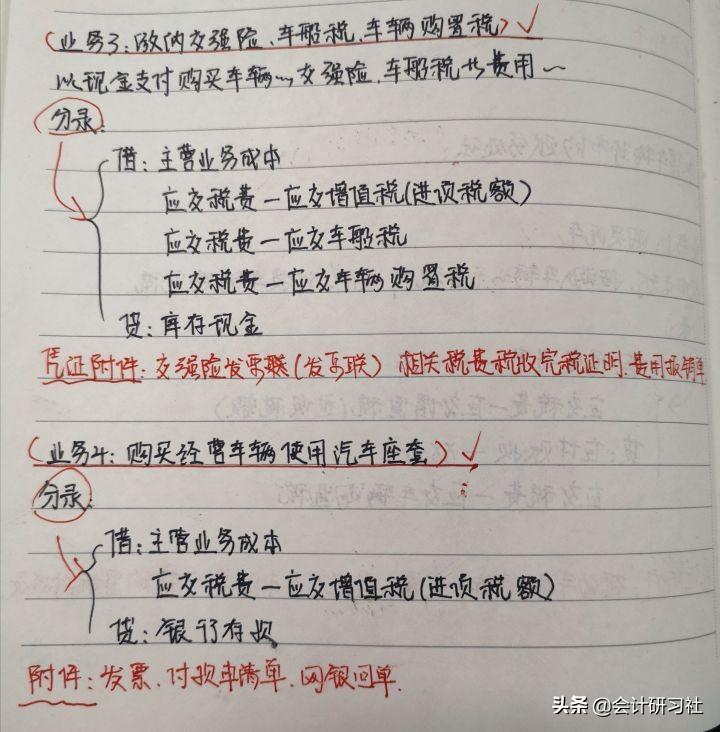 (业务3:缴纳交强险、车船税、车辆购置税)
以现金支付购买车辆~交强险、车船税等费用~
分录:
借:主营业务成本
应交税费一应交增值税(进项税额)
应交税费一应交车船税
应交税费一应交车辆购置税
贷:库存现金
凭证附件:交强险发票联(发票联) 相关税费税收完税证明、费用报销单
(业务4:购买经营车辆使用汽车座套)
分录:
借:主营业务成本
应交税费一应交增值税(进项税额)
贷:银行存款
附件:发票、付款申请单、网银回单.
头条 @会计研习社